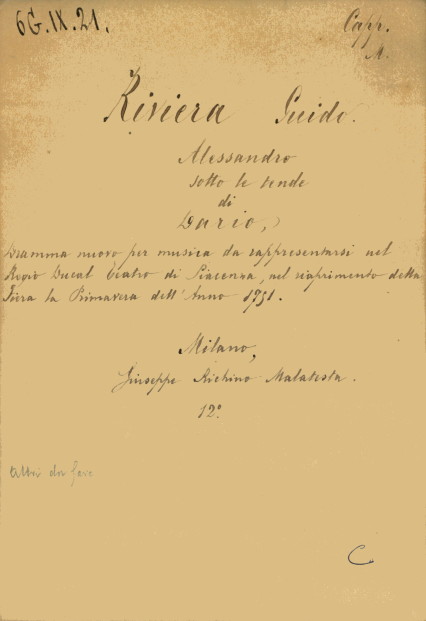 6G.IX.21.
Capp.
A.
Riviera Guido.
Alessandro
sotto le tende
di
Dario,
Dramma nuovo per musica da rappresentarsi nel
Regio Ducal Teatro di Piacenza, nel riaprimento della
Fiera la Primavera dell'Anno 1751.
Milano,
Giuseppe Richino Malatesta.
12°
C